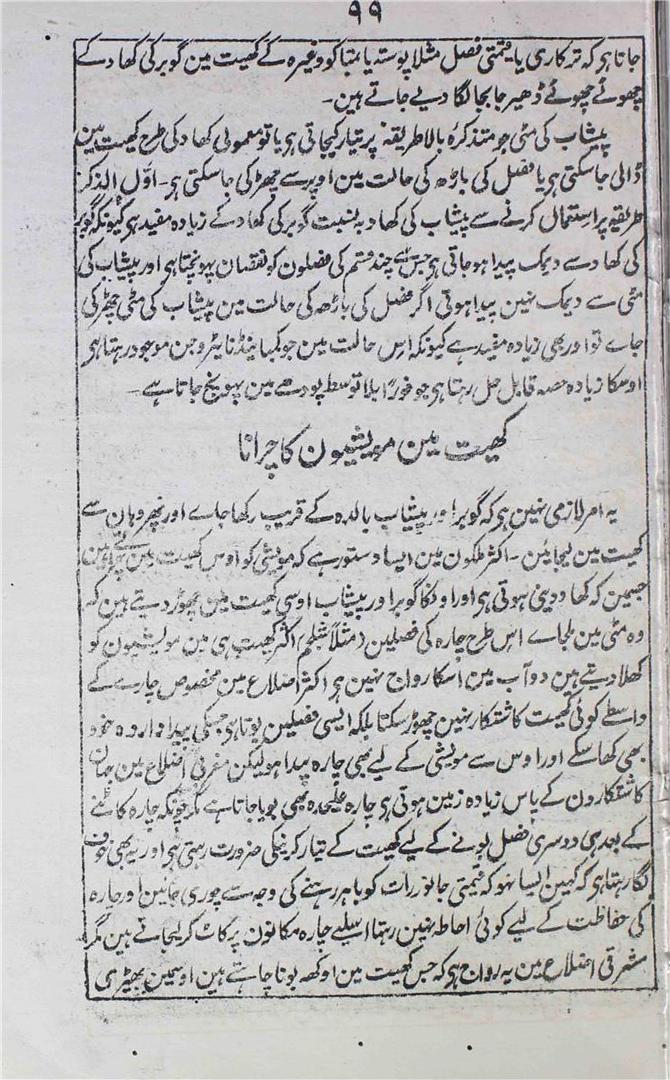 ٩٩
جاتا ہو کہ ترکاری یا قیمتی فصل مثلا پوستہ یا تمباکو وغیرہ کے کھیت مین گوبر کی کھاد کے
چھوٹے چھوٹے ڈھیر جابجا لگا دیے جاتے ہین۔
پیشاب کی مٹی جو متذکرہ بالا طریقہ پر تیار کیجاتی ہی یا تو معمولی کھاد کی طرح کھیت مین
ڈالی جاسکتی ہی یا فصل کی باڑھ کی حالت مین اوپر سے چھڑکی جاسکتی ہی۔ اوّل الذکر
طریقہ پر استعمال کرنے سے پیشاب کی کھاد بہ نسبت گوبر کی کھاد کے زیادہ مفید ہی کیونکہ گوبر
کی کھاد سے دیمک پیدا ہوجاتی ہی جس سے چند قسم کی فصلون کو نقصان پہونچتا ہی اور پیشاب کی
مٹی سے دیمک نہین پیدا ہوتی اگر فصل کی باڑھ کی حالت مین پیشاب کی مٹی چھڑکی
جاے تو اور بھی زیادہ مفید ہے کیونکہ اس حالت مین جو کمبائینڈ نایٹروجن موجود رہتا ہی
اوسکا زیادہ حصہ قابل حل رہتا ہی جو فوراً بلا توسط پودھے مین پہونچ جاتا ہے۔
کھیت مین مویشیون کا چرانا
یہ امر لازمی نہین ہی کہ گوبر اور پیشاب بالدہ کے قریب رکھا جاے اور پھر وہان سے
کھیت مین لیجاین۔ اکثر ملکون مین ایسا دستور ہے کہ مویشی کو اوس کھیت مین چراتے ہین
جسمین کہ کھاد دینی ہوتی ہی اور اونکا گوبر اور پیشاب اوسی کھیت مین چھوڑ دیتے ہین کہ
وہ مٹی مین ملجاے اس طرح چارہ کی فصلین (مثلاً شلجم) اکثر کھیت ہی مین مویشیون کو
کھلا دیتے ہین دوآب مین اسکا رواج نہین ہی اکثر اضلاع مین مخصوص چارے کے
واسطے کوئی کھیت کاشتکار نہین چھوڑ سکتا بلکہ ایسی فصلین بوتا ہی جسکی پیداوار وہ خود
بھی کھاسکے اور اوس سے مویشی کے لیے بھی چارہ پیدا ہو لیکن مغربی اضلاع مین جہان
کاشتکارون کے پاس زیادہ زمین ہوتی ہی چارہ علیحدہ بھی بویا جاتا ہے مگر چونکہ چارہ کاٹنے
کے بعد ہی دوسری فصل بونے کے لیے کھیت کے تیار کرنیکی ضرورت رہتی ہی اور یہ بھی خوف
لگا رہتا ہی کہ کہین ایسا نہو کہ قیمتی جانور رات کو باہر رہنے کی وجہ سے چوری جایئن اور چارہ
کی حفاظت کے لیے کوئی احاطہ نہین رہتا اسلیے چارہ مکانون پر کاٹ کر لیجاتے ہین مگر
مشرقی اضلاع مین یہ رواج ہی کہ جس کھیت مین اوکھہ بونا چاہتے ہین اوسمین بھیڑی